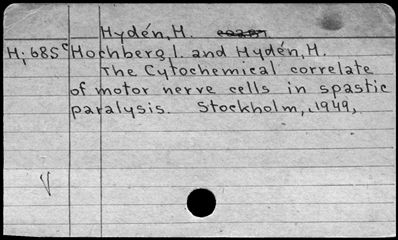 Hydén, H.
H; 685c Hochberg, I. and Hydén, H.
The Cytochemical correlate
of motor nerve cells in spastic
paralysis. Stockholm, 1949,